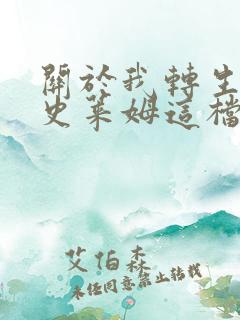 關於我轉生
史萊姆這檔
艾伯森
未經同意禁止轉載